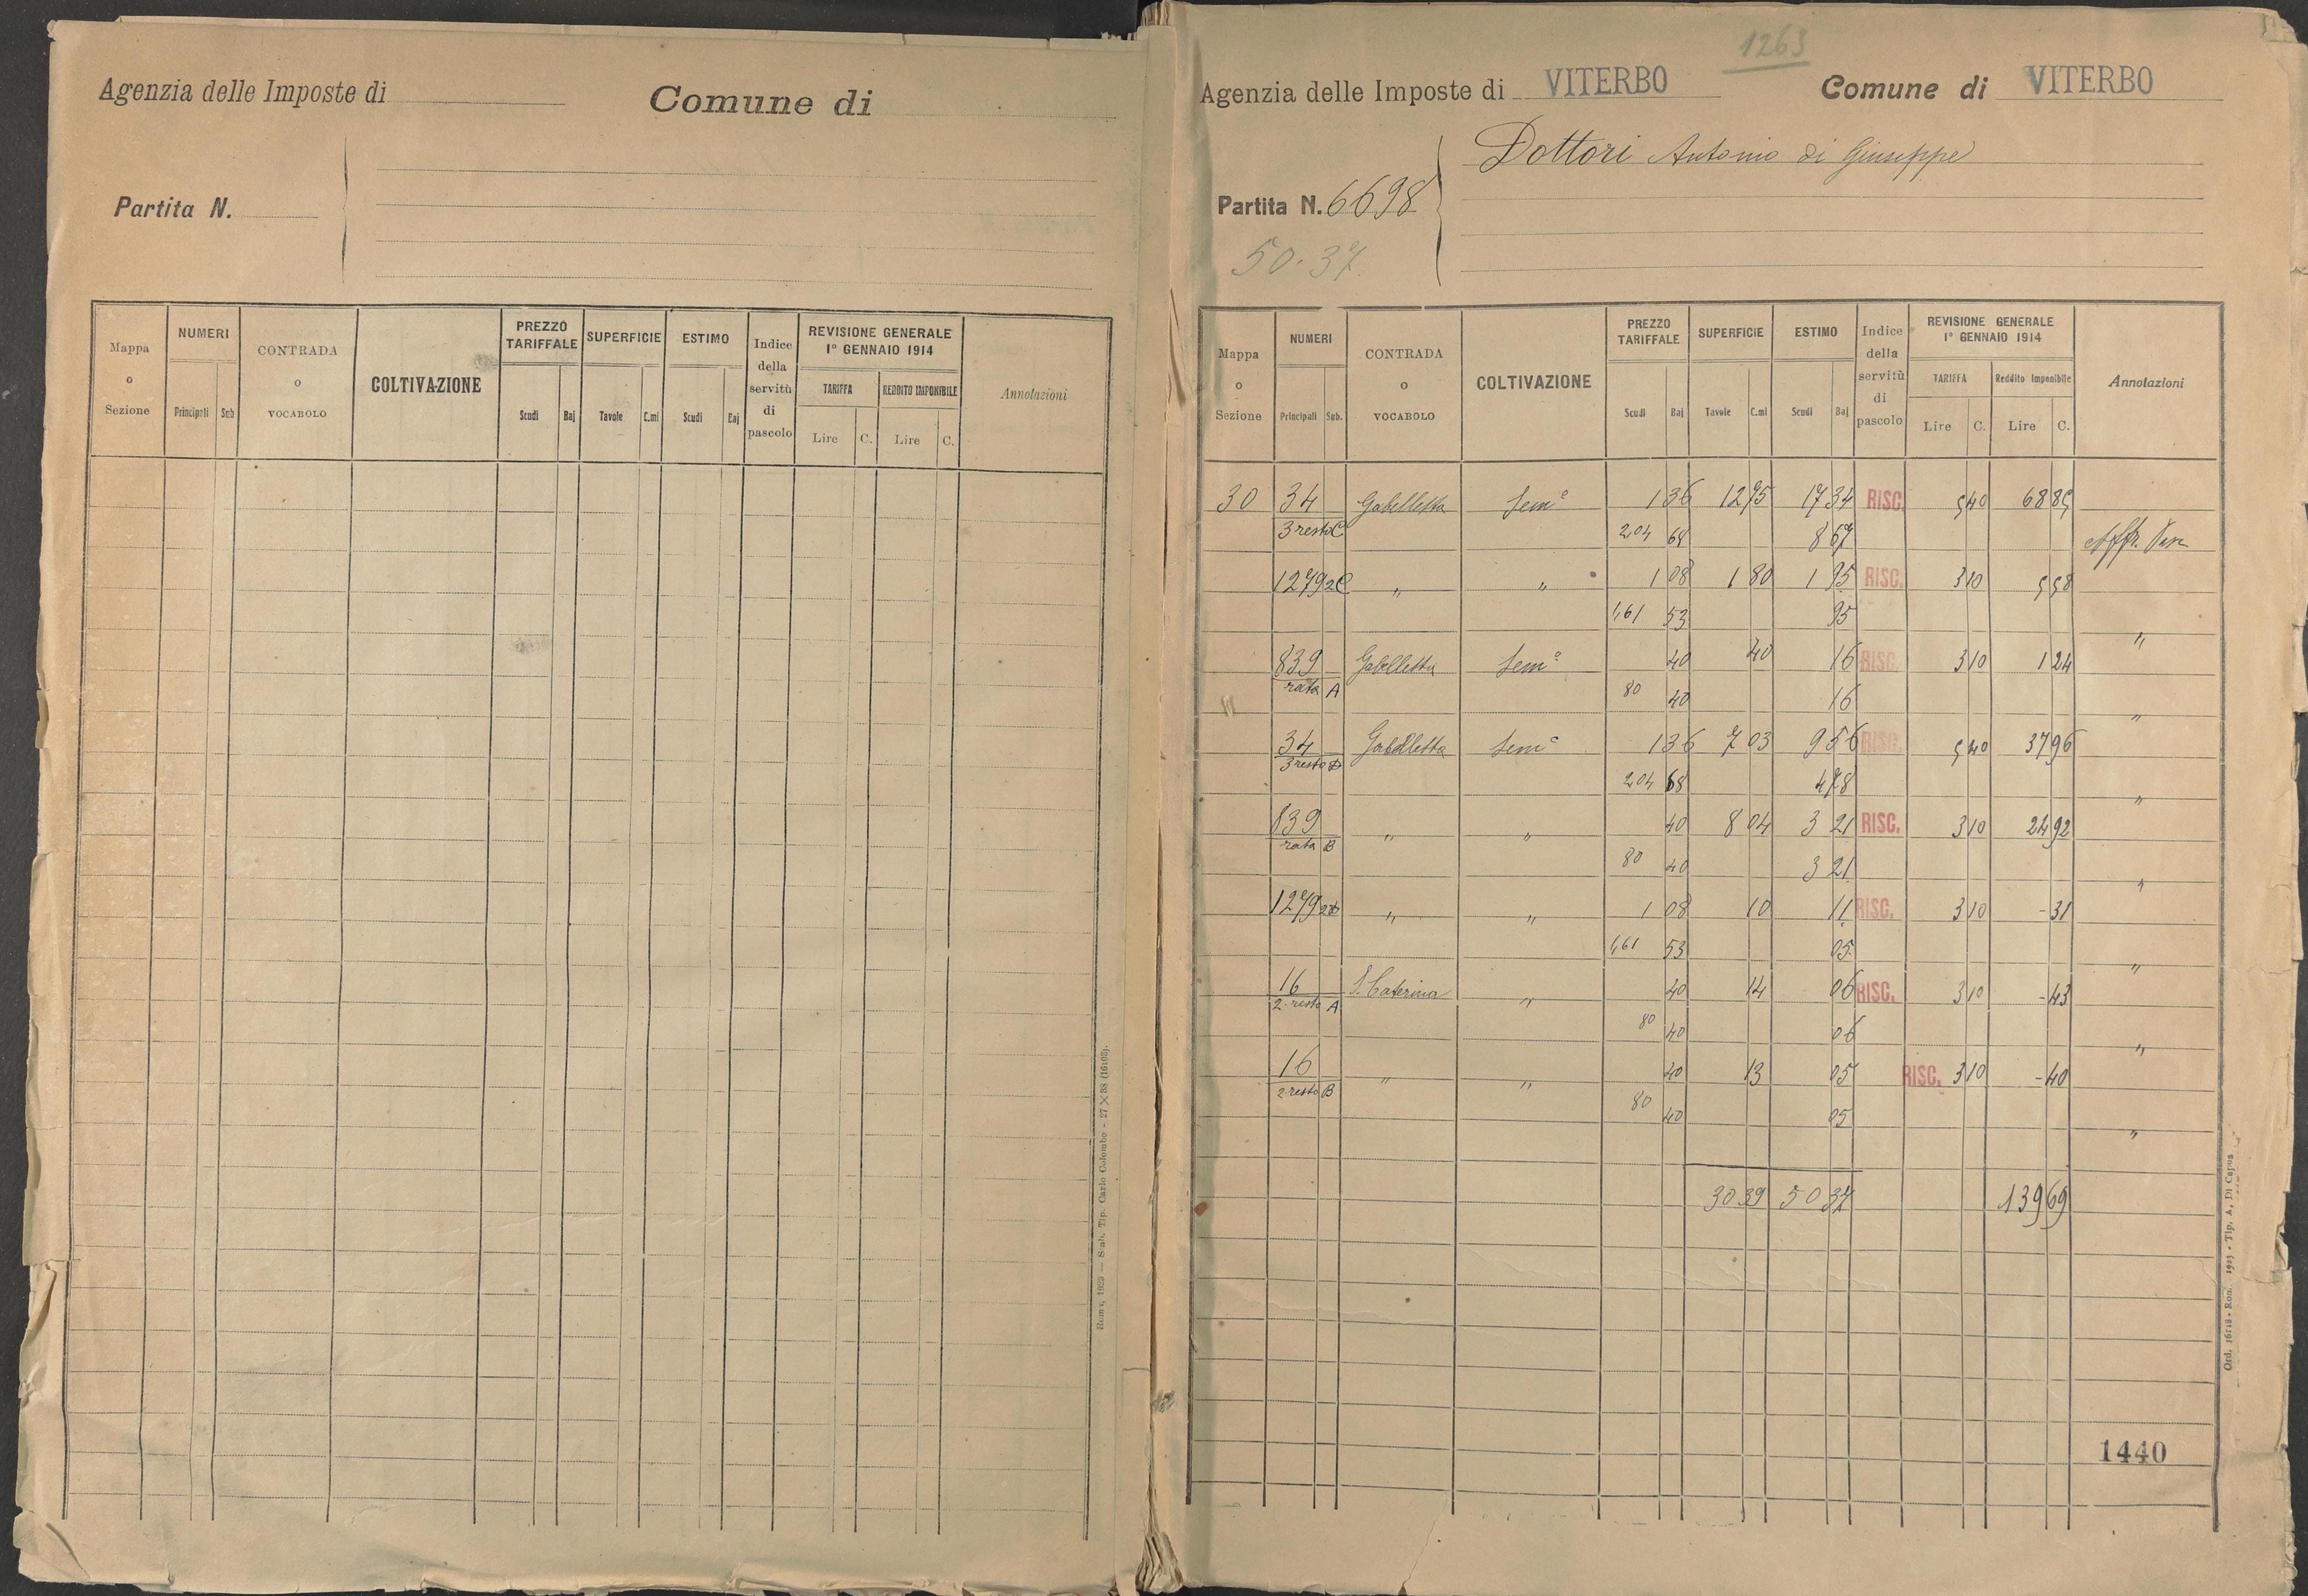 Agenzia delle Imposte di
Comune di
Partita N.
Mappa o Sezione
NUMERI
Principali Sub
CONTRADA o VOCABOLO
COLTIVAZIONE
PREZZO TARIFFALE
Scudi Baj
SUPERFICIE
Tavole C.mi
ESTIMO
Scudi Baj
Indice della servitù di pascolo
REVISIONE GENERALE
1° GENNAIO 1914
TARIFFA REDDITO IMPONIBILE
Lire C. Lire C.
Annotazioni
Roma, 1923 — Stab. Tip. Carlo Colombo - 27×38 (16103).
1263
Agenzia delle Imposte di VITERBO Comune di VITERBO
Dottori Antonio di Giuseppe
Partita N. 6698
50.37.
Mappa o Sezione
NUMERI
Principali Sub.
CONTRADA o VOCABOLO
COLTIVAZIONE
PREZZO TARIFFALE
Scudi Baj
SUPERFICIE
Tavole C.mi
ESTIMO
Scudi Baj
Indice della servitù di pascolo
REVISIONE GENERALE
1° GENNAIO 1914
TARIFFA Reddito Imponibile
Lire C. Lire C.
Annotazioni
30 34 Gabelletta Sem° 1 36 12 75 17 34 RISC. 5 40 68 85
3 resto C 2,04 68 8 67 Affr.
1279 2 C " " 1 08 1 80 1 95 RISC. 3 10 5 58
1,61 53 95 "
839 Gabelletta Sem° 40 40 16 RISC. 3 10 1 24
rata A 80 40 16 "
34 Gabelletta Sem° 1 36 7 03 9 56 RISC. 5 40 37 96
3 resto D 2 04 68 4 78 "
839 " " 40 8 04 3 21 RISC. 3 10 24 92
rata B 80 40 3 21 "
1279 2 D " " 1 08 10 11 RISC. 3 10 - 31
1,61 53 05 "
16 S. Caterina " 40 14 06 RISC. 3 10 - 43
2 resto A 80 40 06 "
16 " " 40 13 05 RISC. 3 10 - 40
2 resto B 80 40 05 "
30 39 50 37 139 69
1440
Ord. 16118 - Rom. 1923 - Tip. A. Di Capua